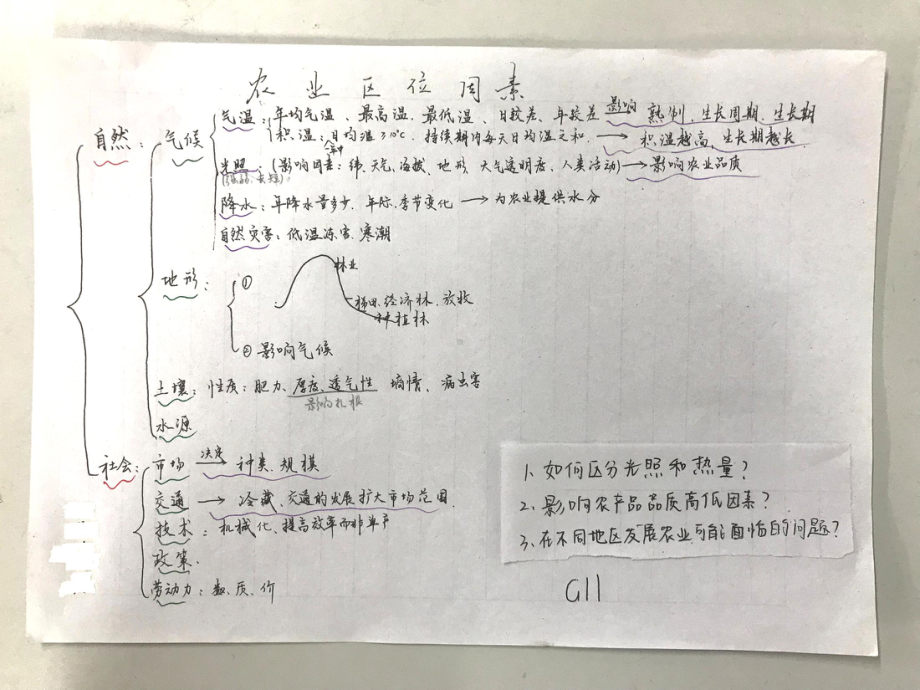 农业区位因素
自然：
气候
气温：年均气温、最高温、最低温、日较差、年较差 影响 熟制、生长周期、生长期
积温：日均温≥10℃ 持续期内每天日均温之和. → 积温越高, 生长期越长
光照：(影响因素：纬、天气、海拔、地形、大气透明度、人类活动) → 影响农业品质
降水：年降水量多少、年际、季节变化 → 为农业提供水分
自然灾害：低温冻害、寒潮
地形：
①
林业
梯田、经济林、放牧
种植林
② 影响气候
土壤：性质：肥力、厚度、透气性 墒情、病虫害
影响扎根
水源
社会：
市场 决定 → 种类、规模
交通 → 冷藏、交通的发展扩大市场范围
技术：机械化、提高效率而非单产
政策.
劳动力：数、质、价
1、如何区分光照和热量？
2、影响农产品品质高低因素？
3、在不同地区发展农业可能面临的问题？
G11